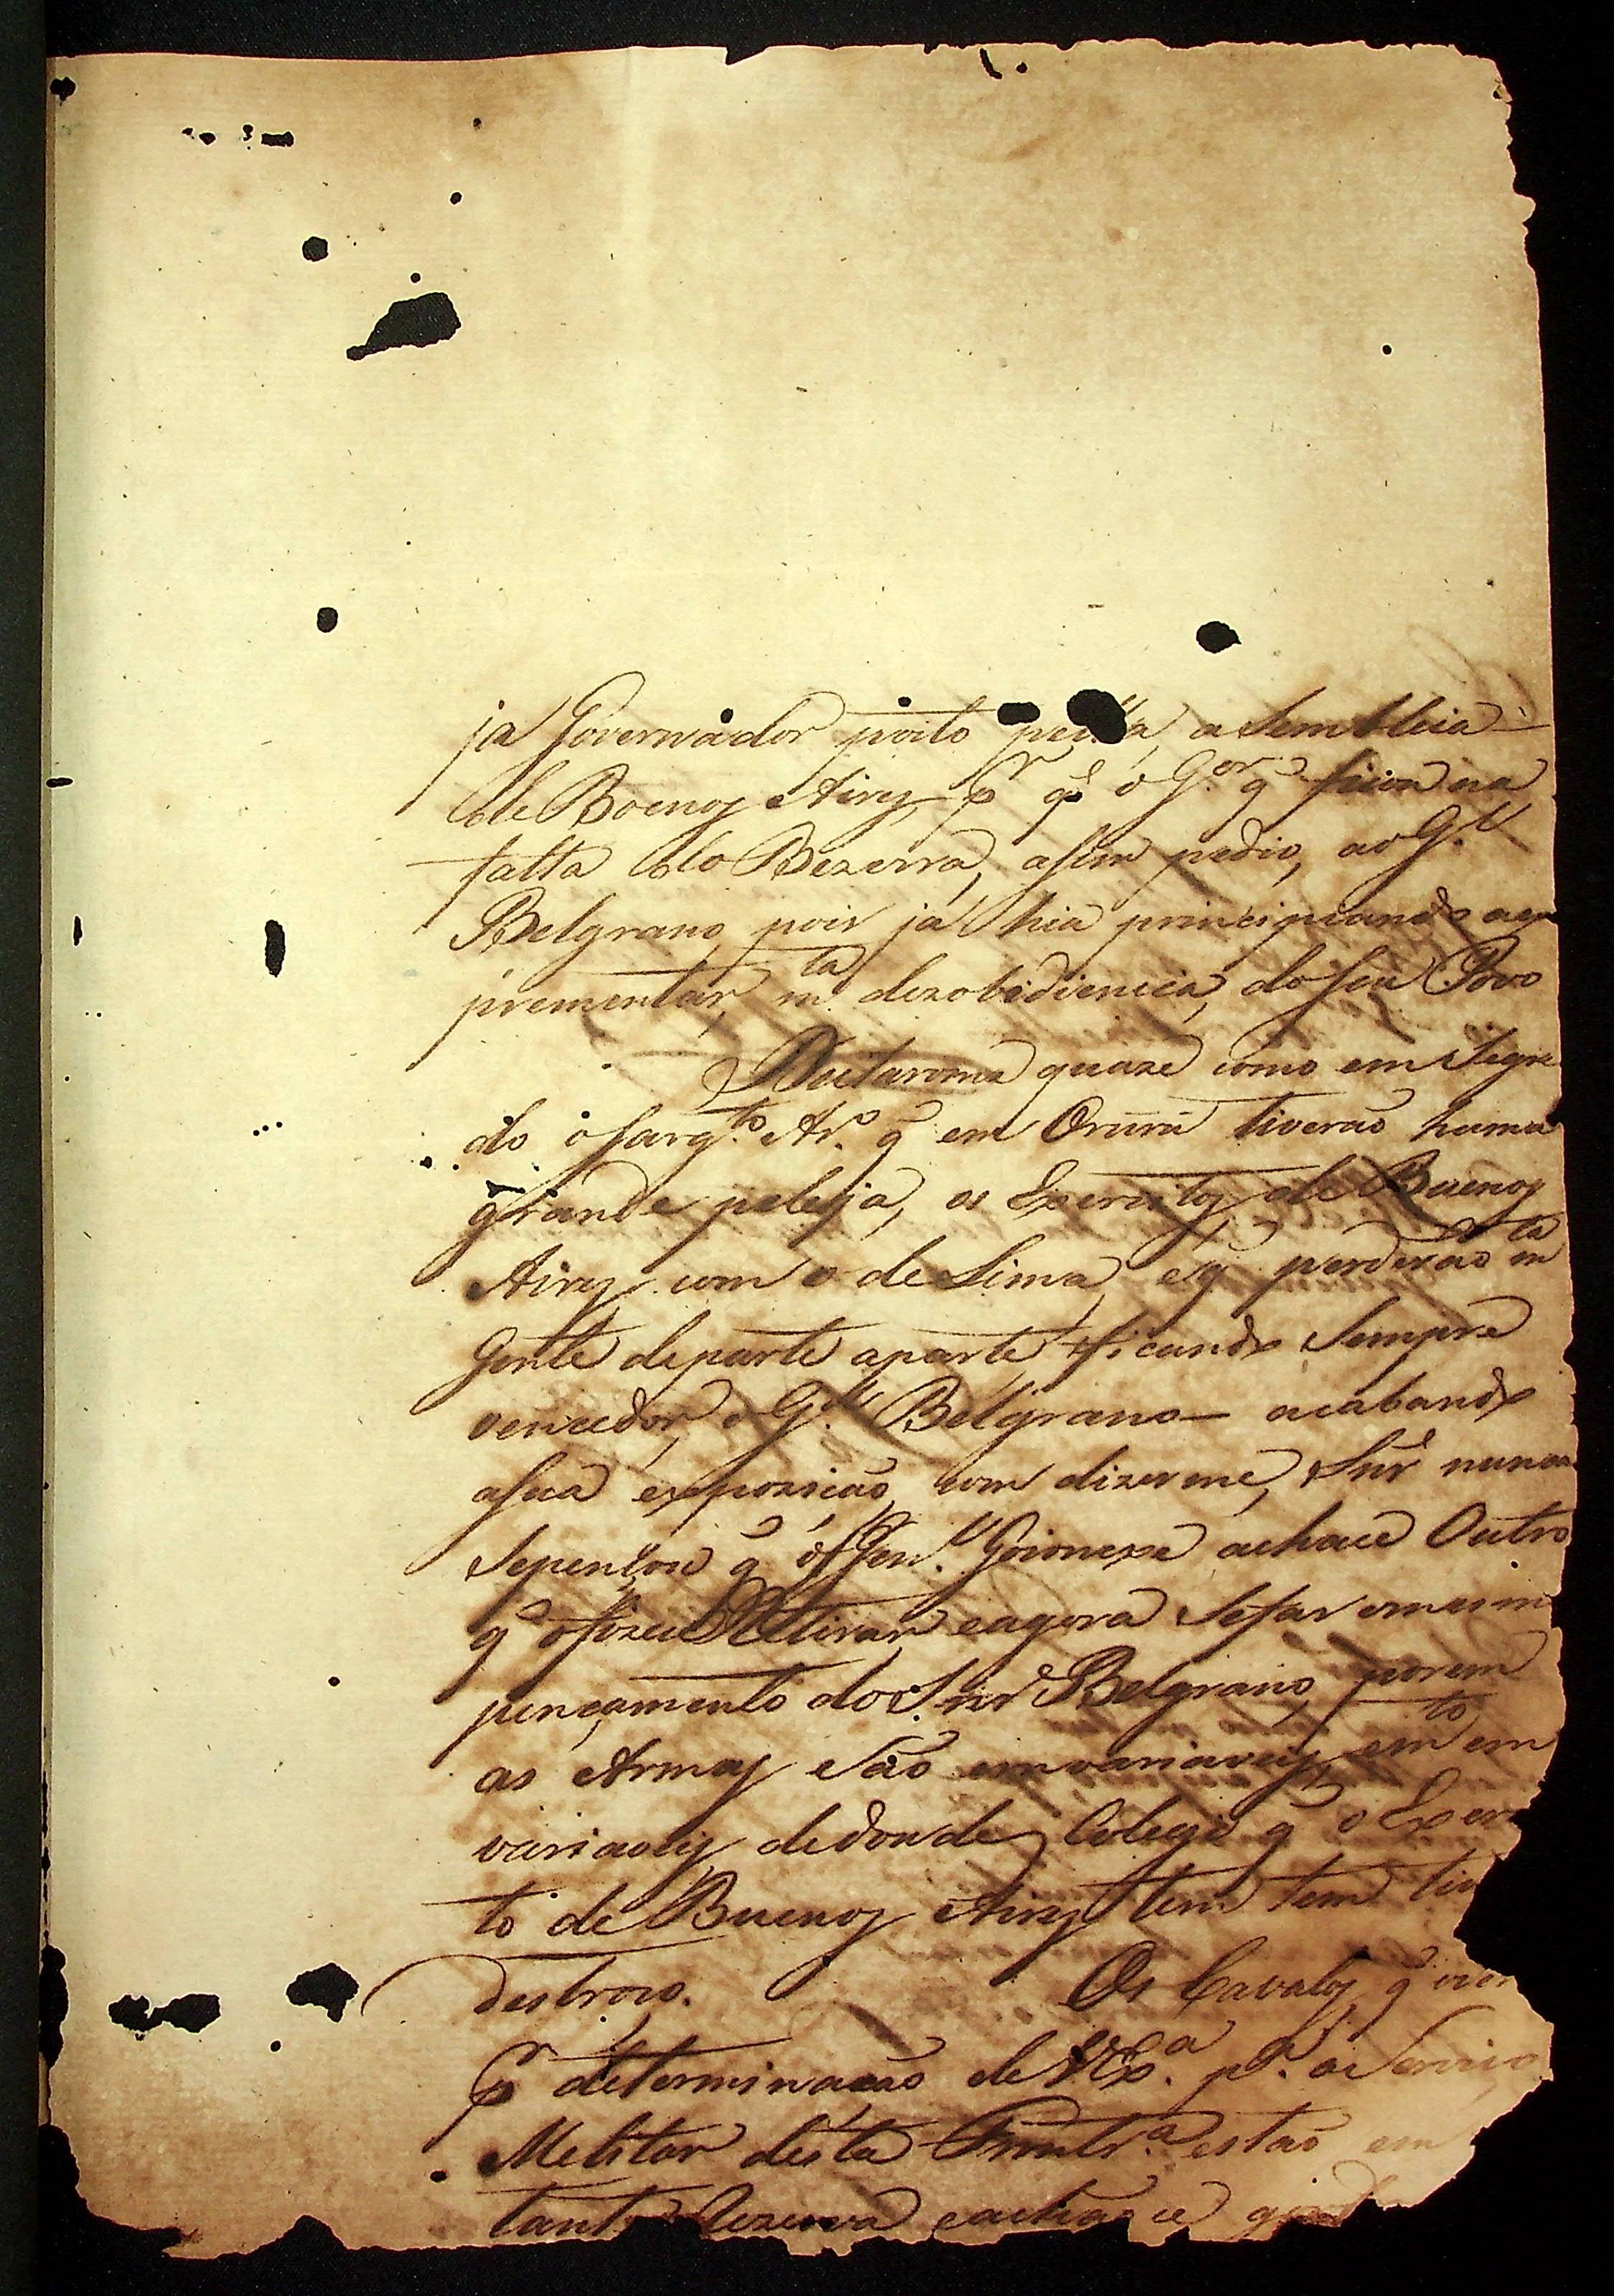 ja Governador posto pella aSemblia
de Boenos Aires, pr qe o G.or q ficou na
falta do Bezerra, asim pedio, ao G.l
Belgrano, pois já hia principiando a
prementar, m.ta dezobidiencia, do seu Povo
quaze como em Segre
do o Sarg.to Ar.o q em Orúrú tiverão huma
grande peleja, os Exercitos de Buenos
Aires com o de Lima, e q perderão m.ta
Gente de parte aparte ficando Sempre
vencedor, o G.l Belgrano — acabando
asua expozicão, com dizerme, Snr nunca
Sepençou q o Gen.l Goionexe achace Outro
q ofizece Retirar, eagora Sefas omesm
pençamento do Snr Belgrano, porem
as Armas São emvariaveis, em to em
variaveis dedonde Colegi q o Exer
to de Buenos Aires tem tem tiv
destroço. Os Cavalos q vier
pr determinação de V Ex.a p.a o Serviço
Melitar desta Front.ra estão em
tanta Rezerva eachãoce